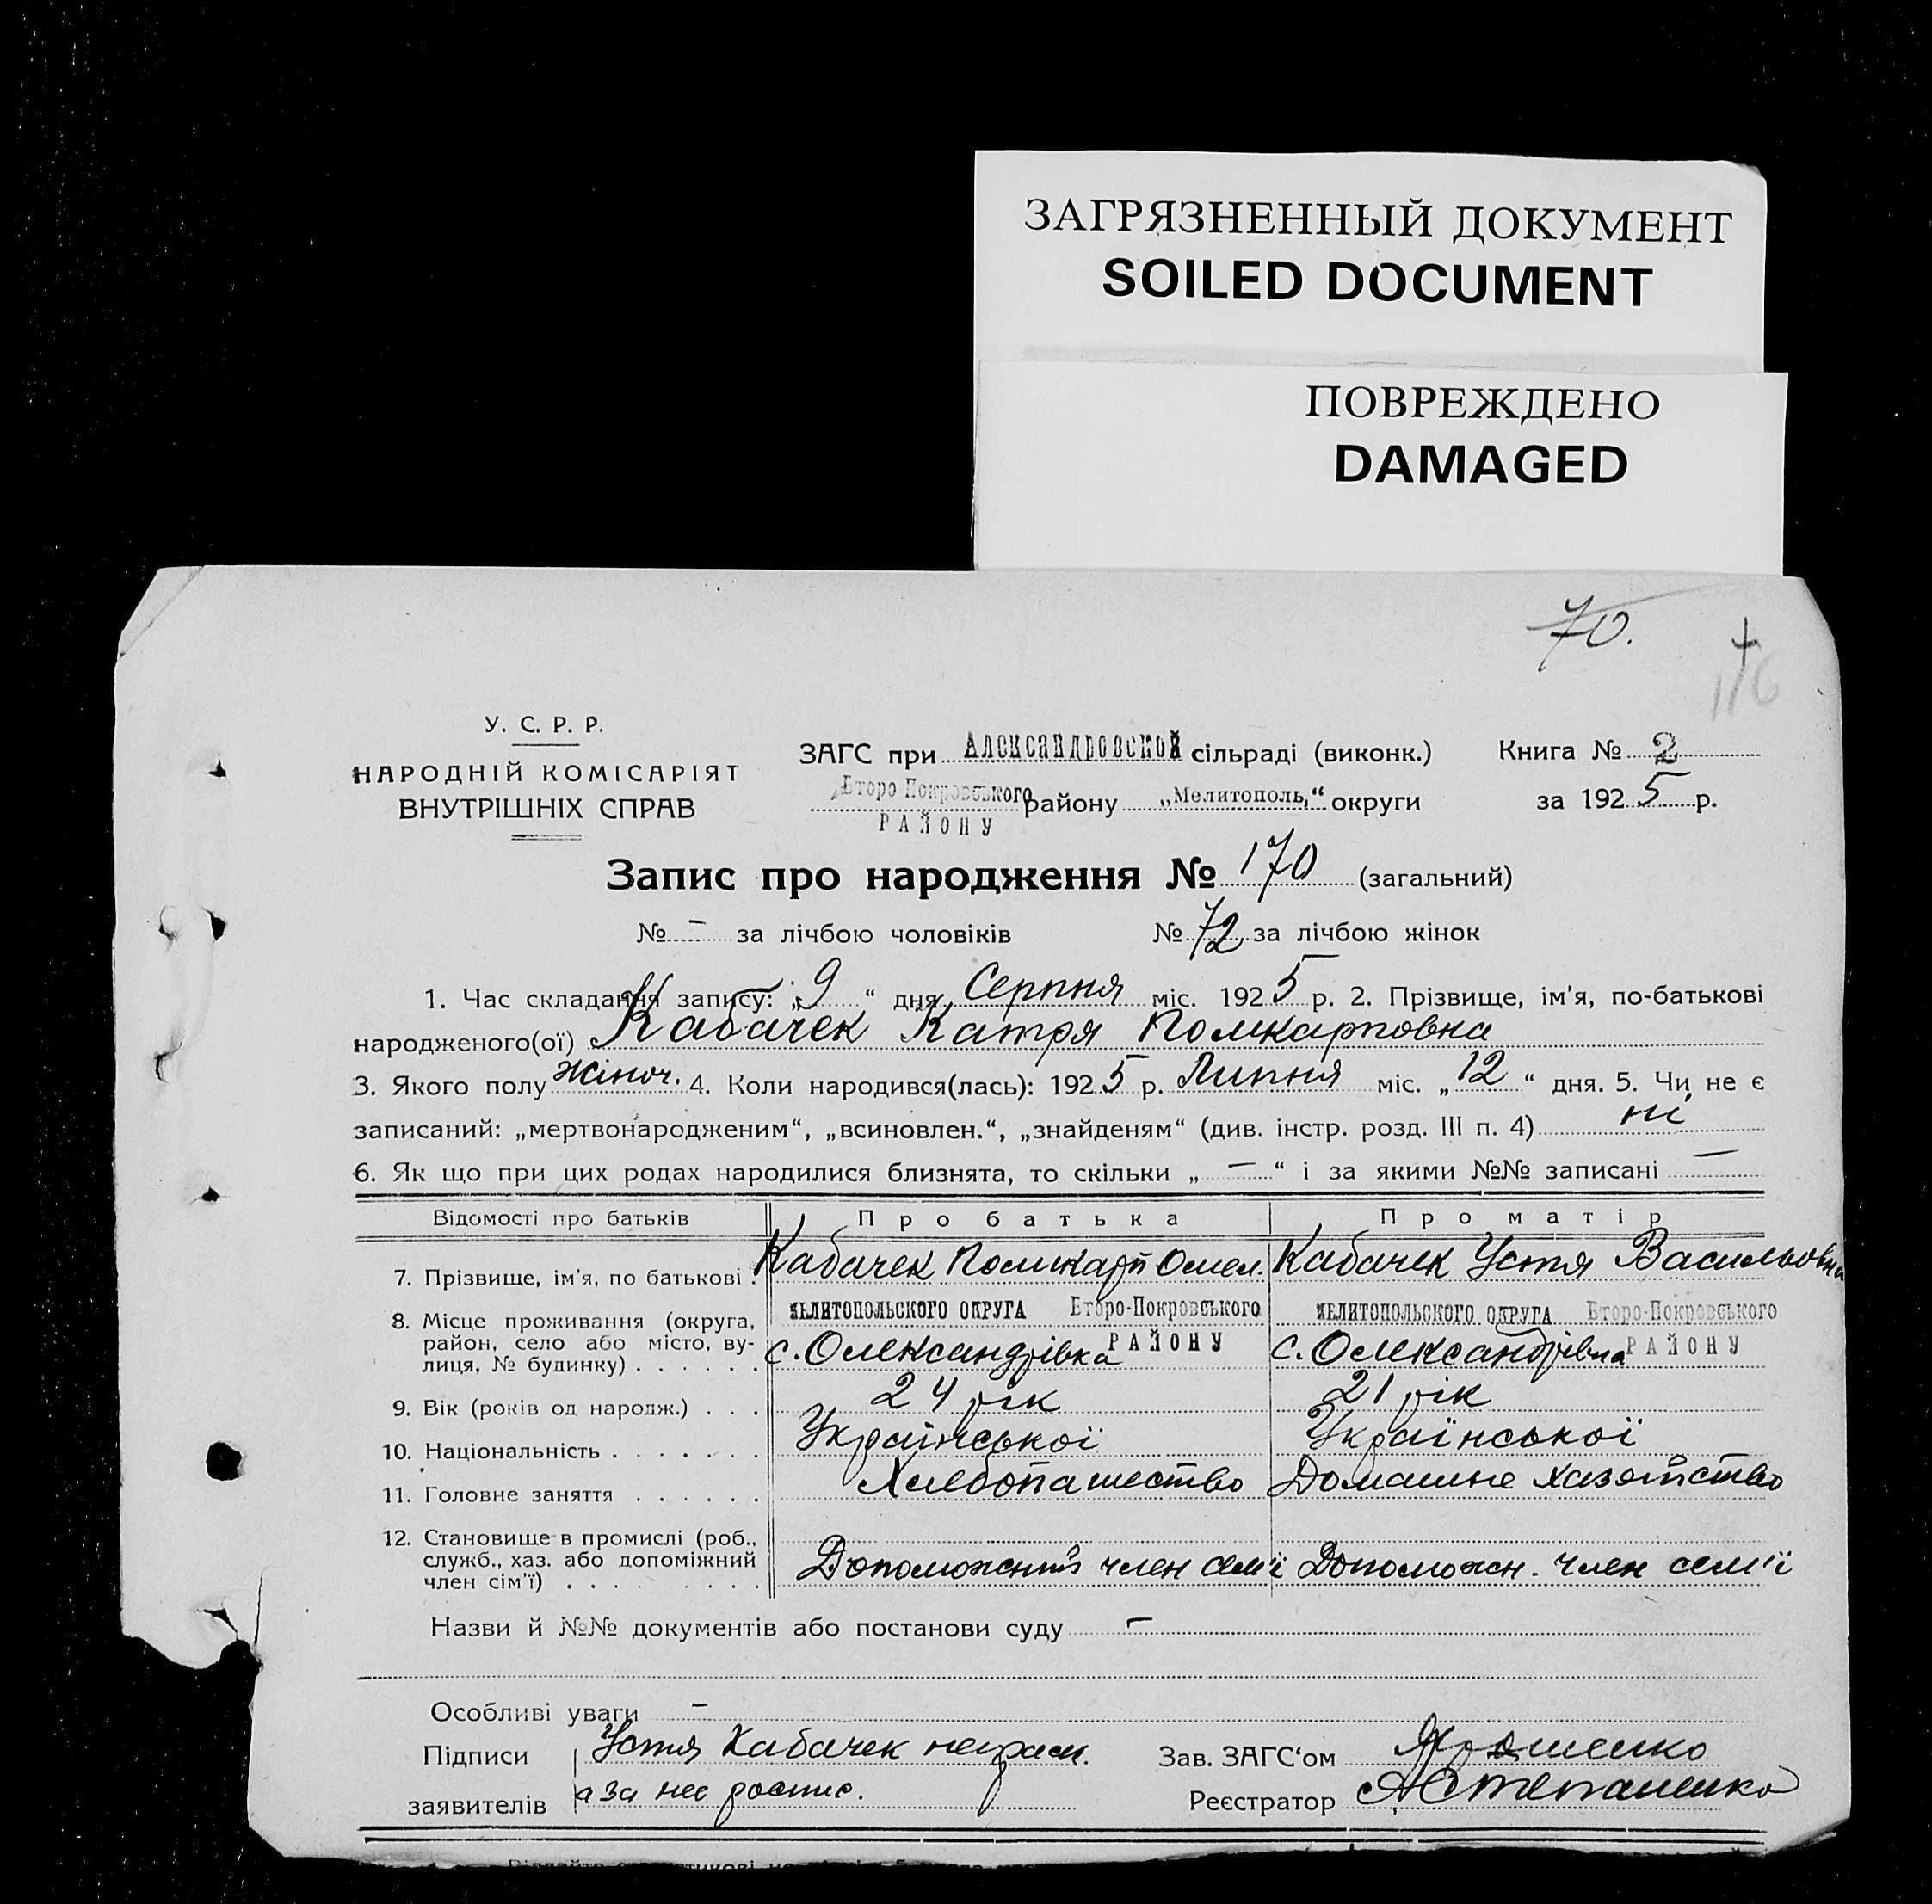 ЗАГРЯЗНЕННЫЙ ДОКУМЕНТ
SOILED DOCUMENT
ПОВРЕЖДЕНО
DAMAGED
70.
У. С. Р. Р.
НАРОДНІЙ КОМІСАРІЯТ
ВНУТРІШНІХ СПРАВ
ЗАГС при Александровской сільраді (виконк.) Книга № 2
Второ-Покровського району „Мелитополь,“ округи за 1925 р.
РАЙОНУ
Запис про народження № 170 (загальний)
№ – за лічбою чоловіків № 72 за лічбою жінок
1. Час складання запису: „9“ дня Серпня міс. 1925 р. 2. Прізвище, ім’я, по-батькові
народженого(ої) Кабачек Катря Полікарповна
3. Якого полу жіноч. 4. Коли народився(лась): 1925 р. Липня міс. „12“ дня. 5. Чи не є
записаний: „мертвонародженим“, „всиновлен.“, „знайденям“ (див. інстр. розд. III п. 4) ні
6. Як що при цих родах народилися близнята, то скільки „ — “ і за якими №№ записані —
Відомості про батьків Про батька Про матір
7. Прізвище, ім’я, по батькові . Кабачек Полікарп Омел. Кабачек Устя Васильовна
8. Місце проживання (округа, МЕЛИТОПОЛЬСКОГО ОКРУГА Второ-Покровського МЕЛИТОПОЛЬСКОГО ОКРУГА Второ-Покровського
район, село або місто, ву- с. Олександрівка РАЙОНУ с. Олександрівка РАЙОНУ
лиця, № будинку) . . . . . .
9. Вік (років од народж.) . . . 24 рік 21 рік
10. Національність . . . . . . . Української Української
11. Головне заняття . . . . . . Хлебопашество Домашне хазяйство
12. Становище в промислі (роб.,
служб., хаз. або допоміжний Допоможний член сем'ї Допоможн. член сем'ї
член сім’ї) . . . . . . . . .
Назви й №№ документів або постанови суду –
Особливі уваги –
Підписи Устя Кабачек Зав. ЗАГС‘ом Ярошенко
заявителів а за нее роспис. Реєстратор АСтепаненко